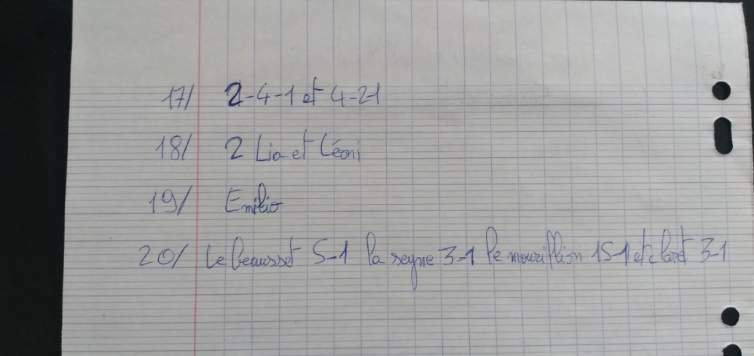 17/ 2-4-1 et 4-2-1
18/ 2 Lia et Léoni
19/ Emilio
20/ Le Beausset 5-1 la seyne 3-1 le mourillion 15-1 et 3-1